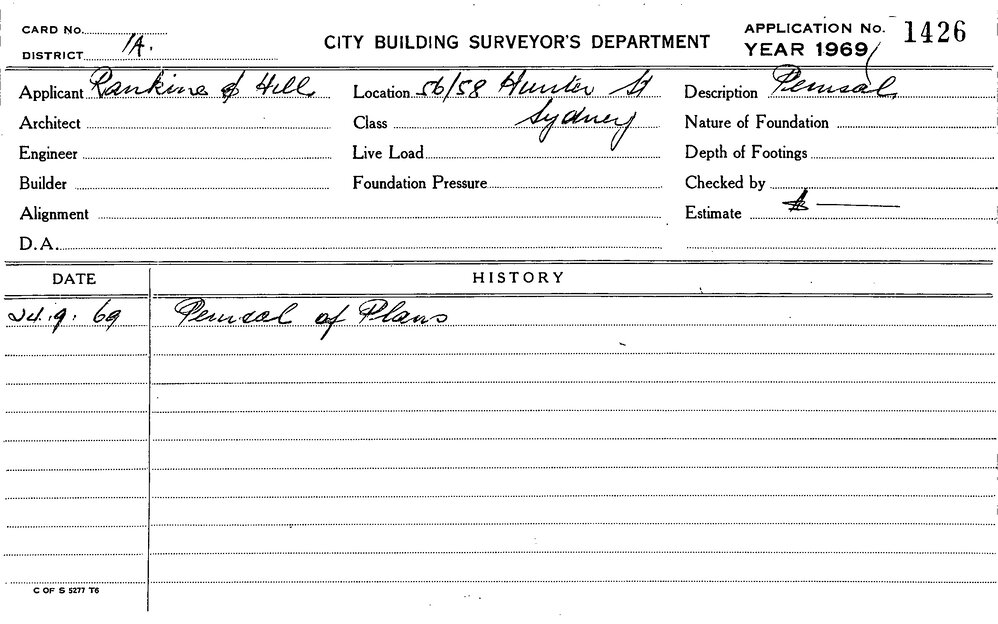 CARD No.
DISTRICT 1A.
CITY BUILDING SURVEYOR'S DEPARTMENT
APPLICATION No. 1426
YEAR 1969/
Applicant Rankine & Hill
Location 56/58 Hunter St
Description Perusal
Architect
Class Sydney
Nature of Foundation
Engineer
Live Load
Depth of Footings
Builder
Foundation Pressure
Checked by
Alignment
Estimate $ —
D.A.
DATE
HISTORY
24.9.69 Perusal of Plans
C OF S 5277 T6